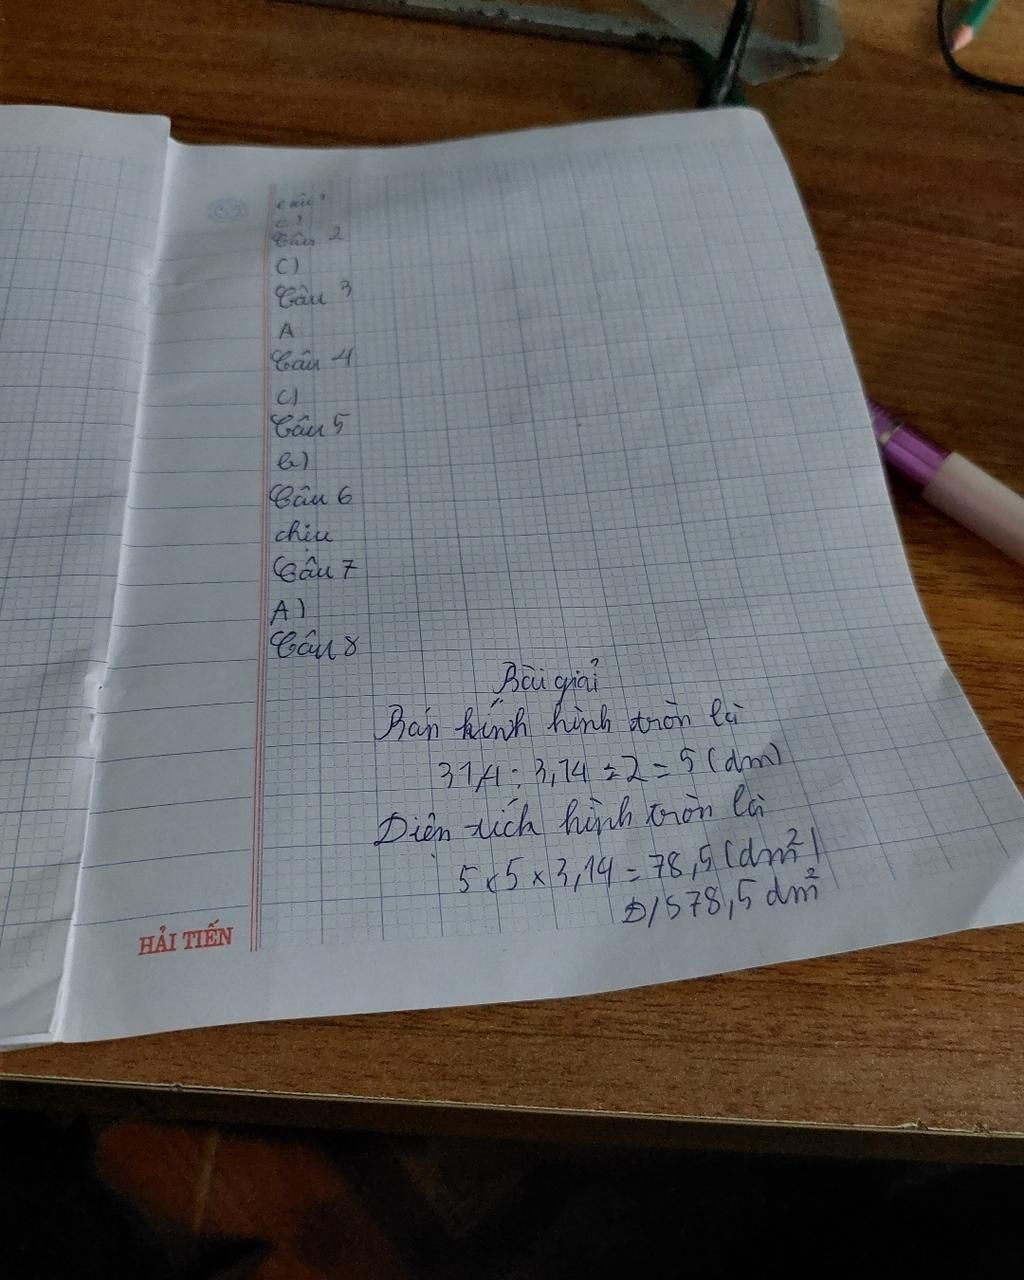 Câu 1
c)
Câu 2
C)
Câu 3
A
Câu 4
c)
Câu 5
b)
Câu 6
chịu
Câu 7
A)
Câu 8
Bài giải
Bán kính hình tròn là
31,4 : 3,14 : 2 = 5 (dm)
Diện tích hình tròn là
5 x 5 x 3,14 = 78,5 (dm²)
Đ/S 78,5 dm²
HẢI TIẾN